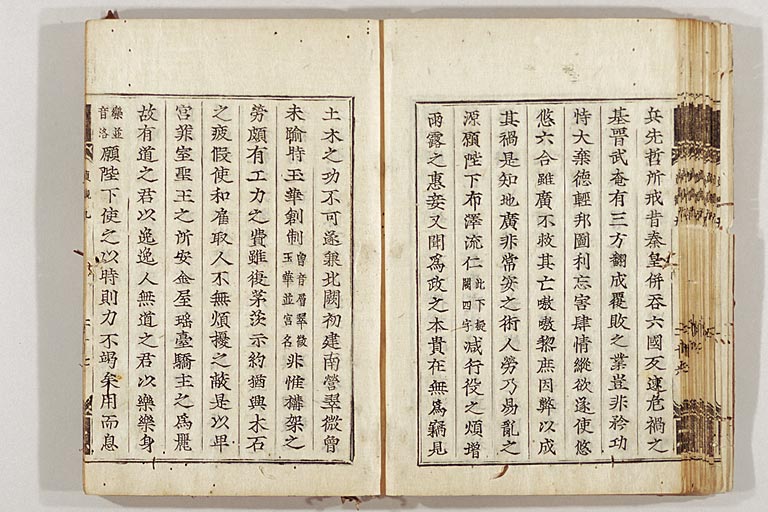 兵先哲所戒昔秦皇併吞六國反速危禍之
基晋武奄有三方翻成覆敗之業豈非矜功
恃大棄德輕邦圖利忘害肆情縱欲遂使悠
悠六合雖廣不救其亡嗷嗷黎庶因弊以成
其禍是知地廣非常安之術人勞乃易亂之
源願陛下布澤流仁此下疑闕四字减行役之煩增
雨露之惠妾又聞爲政之本貴在無爲竊見
土木之功不可遂兼北闕初建南營翠微曾
未踰時玉華創制曾音層翠微玉華並宮名非惟構架之
勞頗有工力之費雖復茅茨示約猶興木石
之疲假使和雇取人不無煩擾之弊是以卑
宮菲室聖王之所安金屋瑶臺驕主之爲麗
故有道之君以逸逸人無道之君以樂樂身
樂並音洛願陛下使之以時則力不竭矣用而息